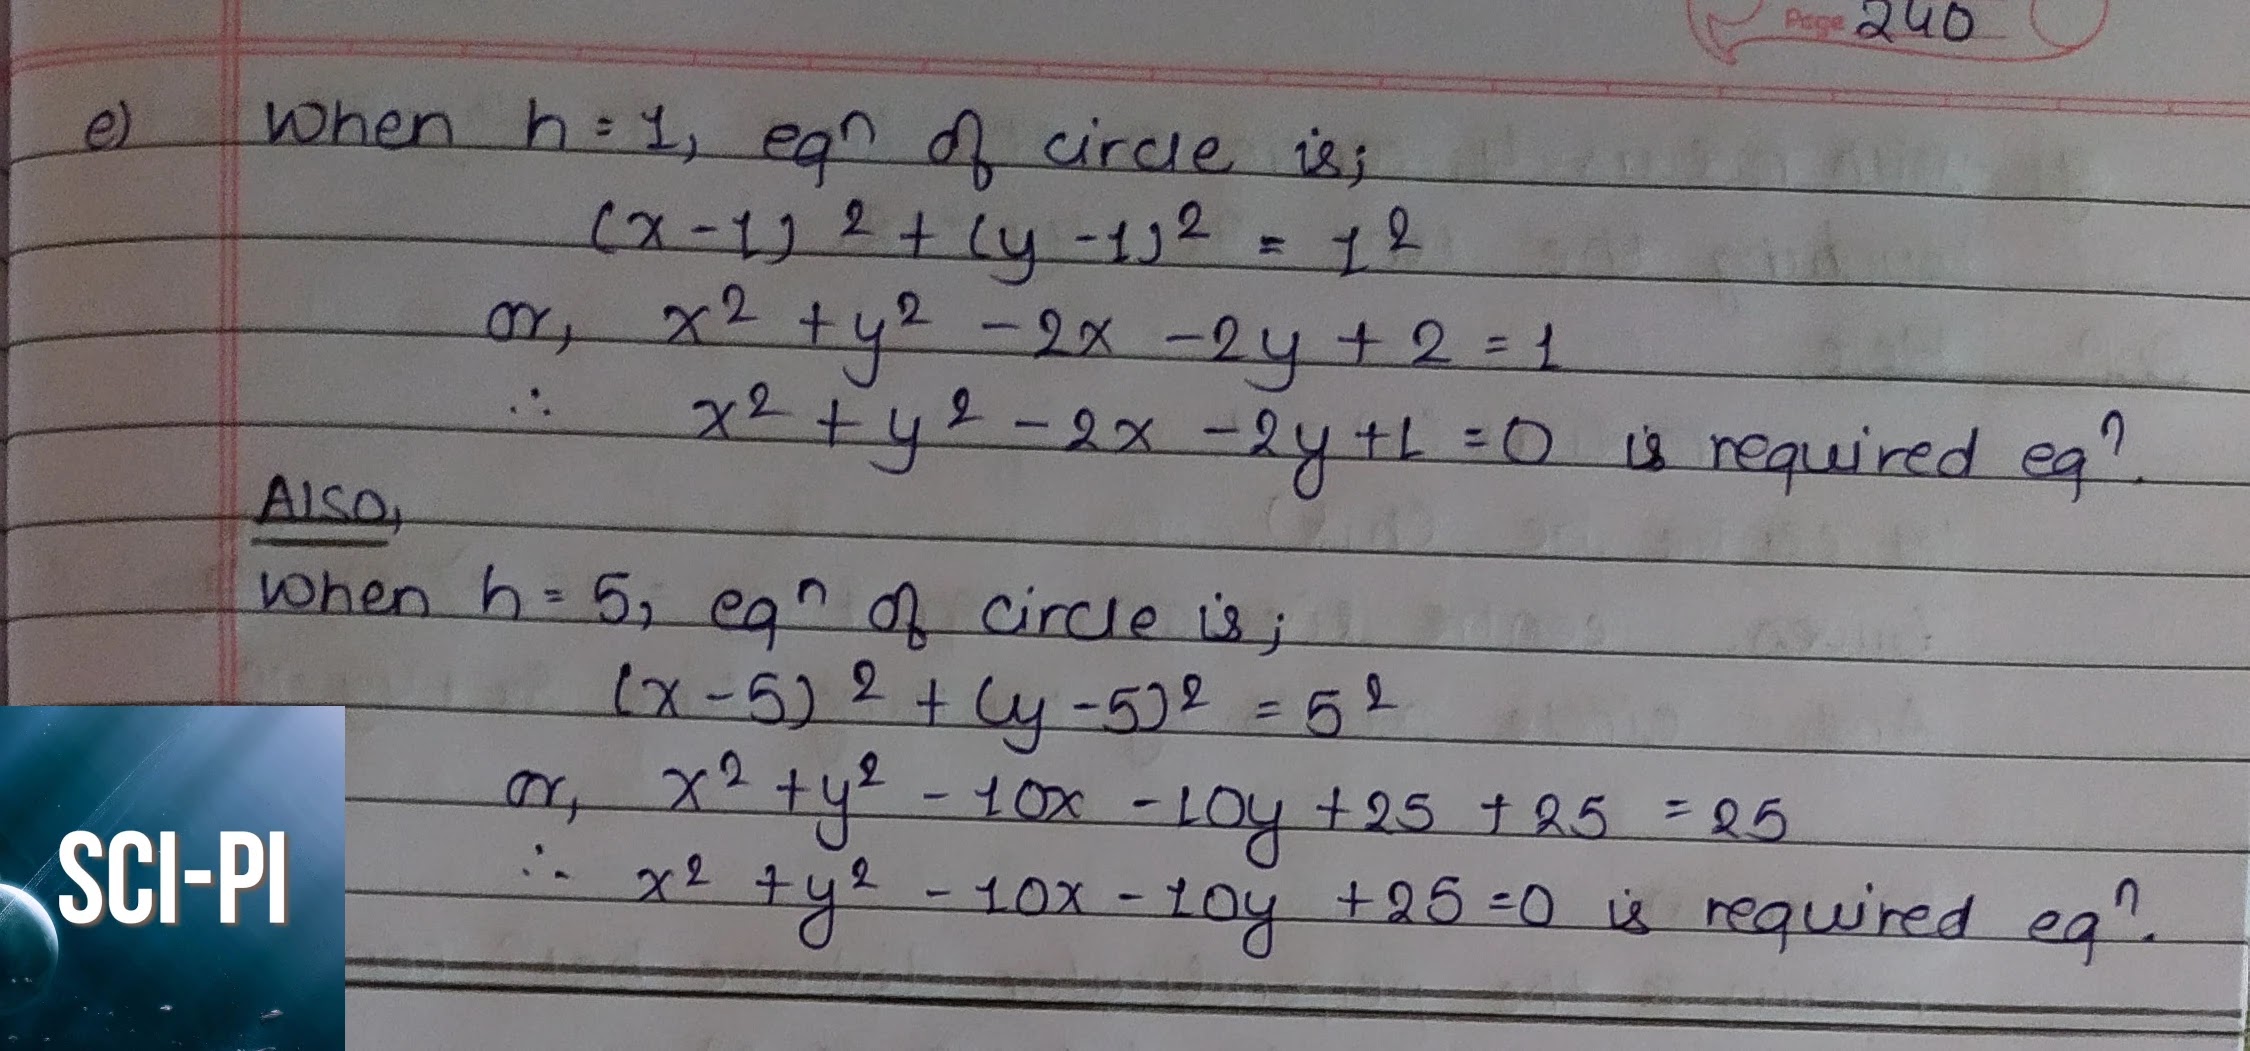 Page 240
e) When h = 1, eqⁿ of circle is;
(x - 1)² + (y - 1)² = 1²
or, x² + y² - 2x - 2y + 2 = 1
∴ x² + y² - 2x - 2y + 1 = 0 is required eqⁿ.
Also,
When h = 5, eqⁿ of circle is;
(x - 5)² + (y - 5)² = 5²
or, x² + y² - 10x - 10y + 25 + 25 = 25
∴ x² + y² - 10x - 10y + 25 = 0 is required eqⁿ.
SCI-PI